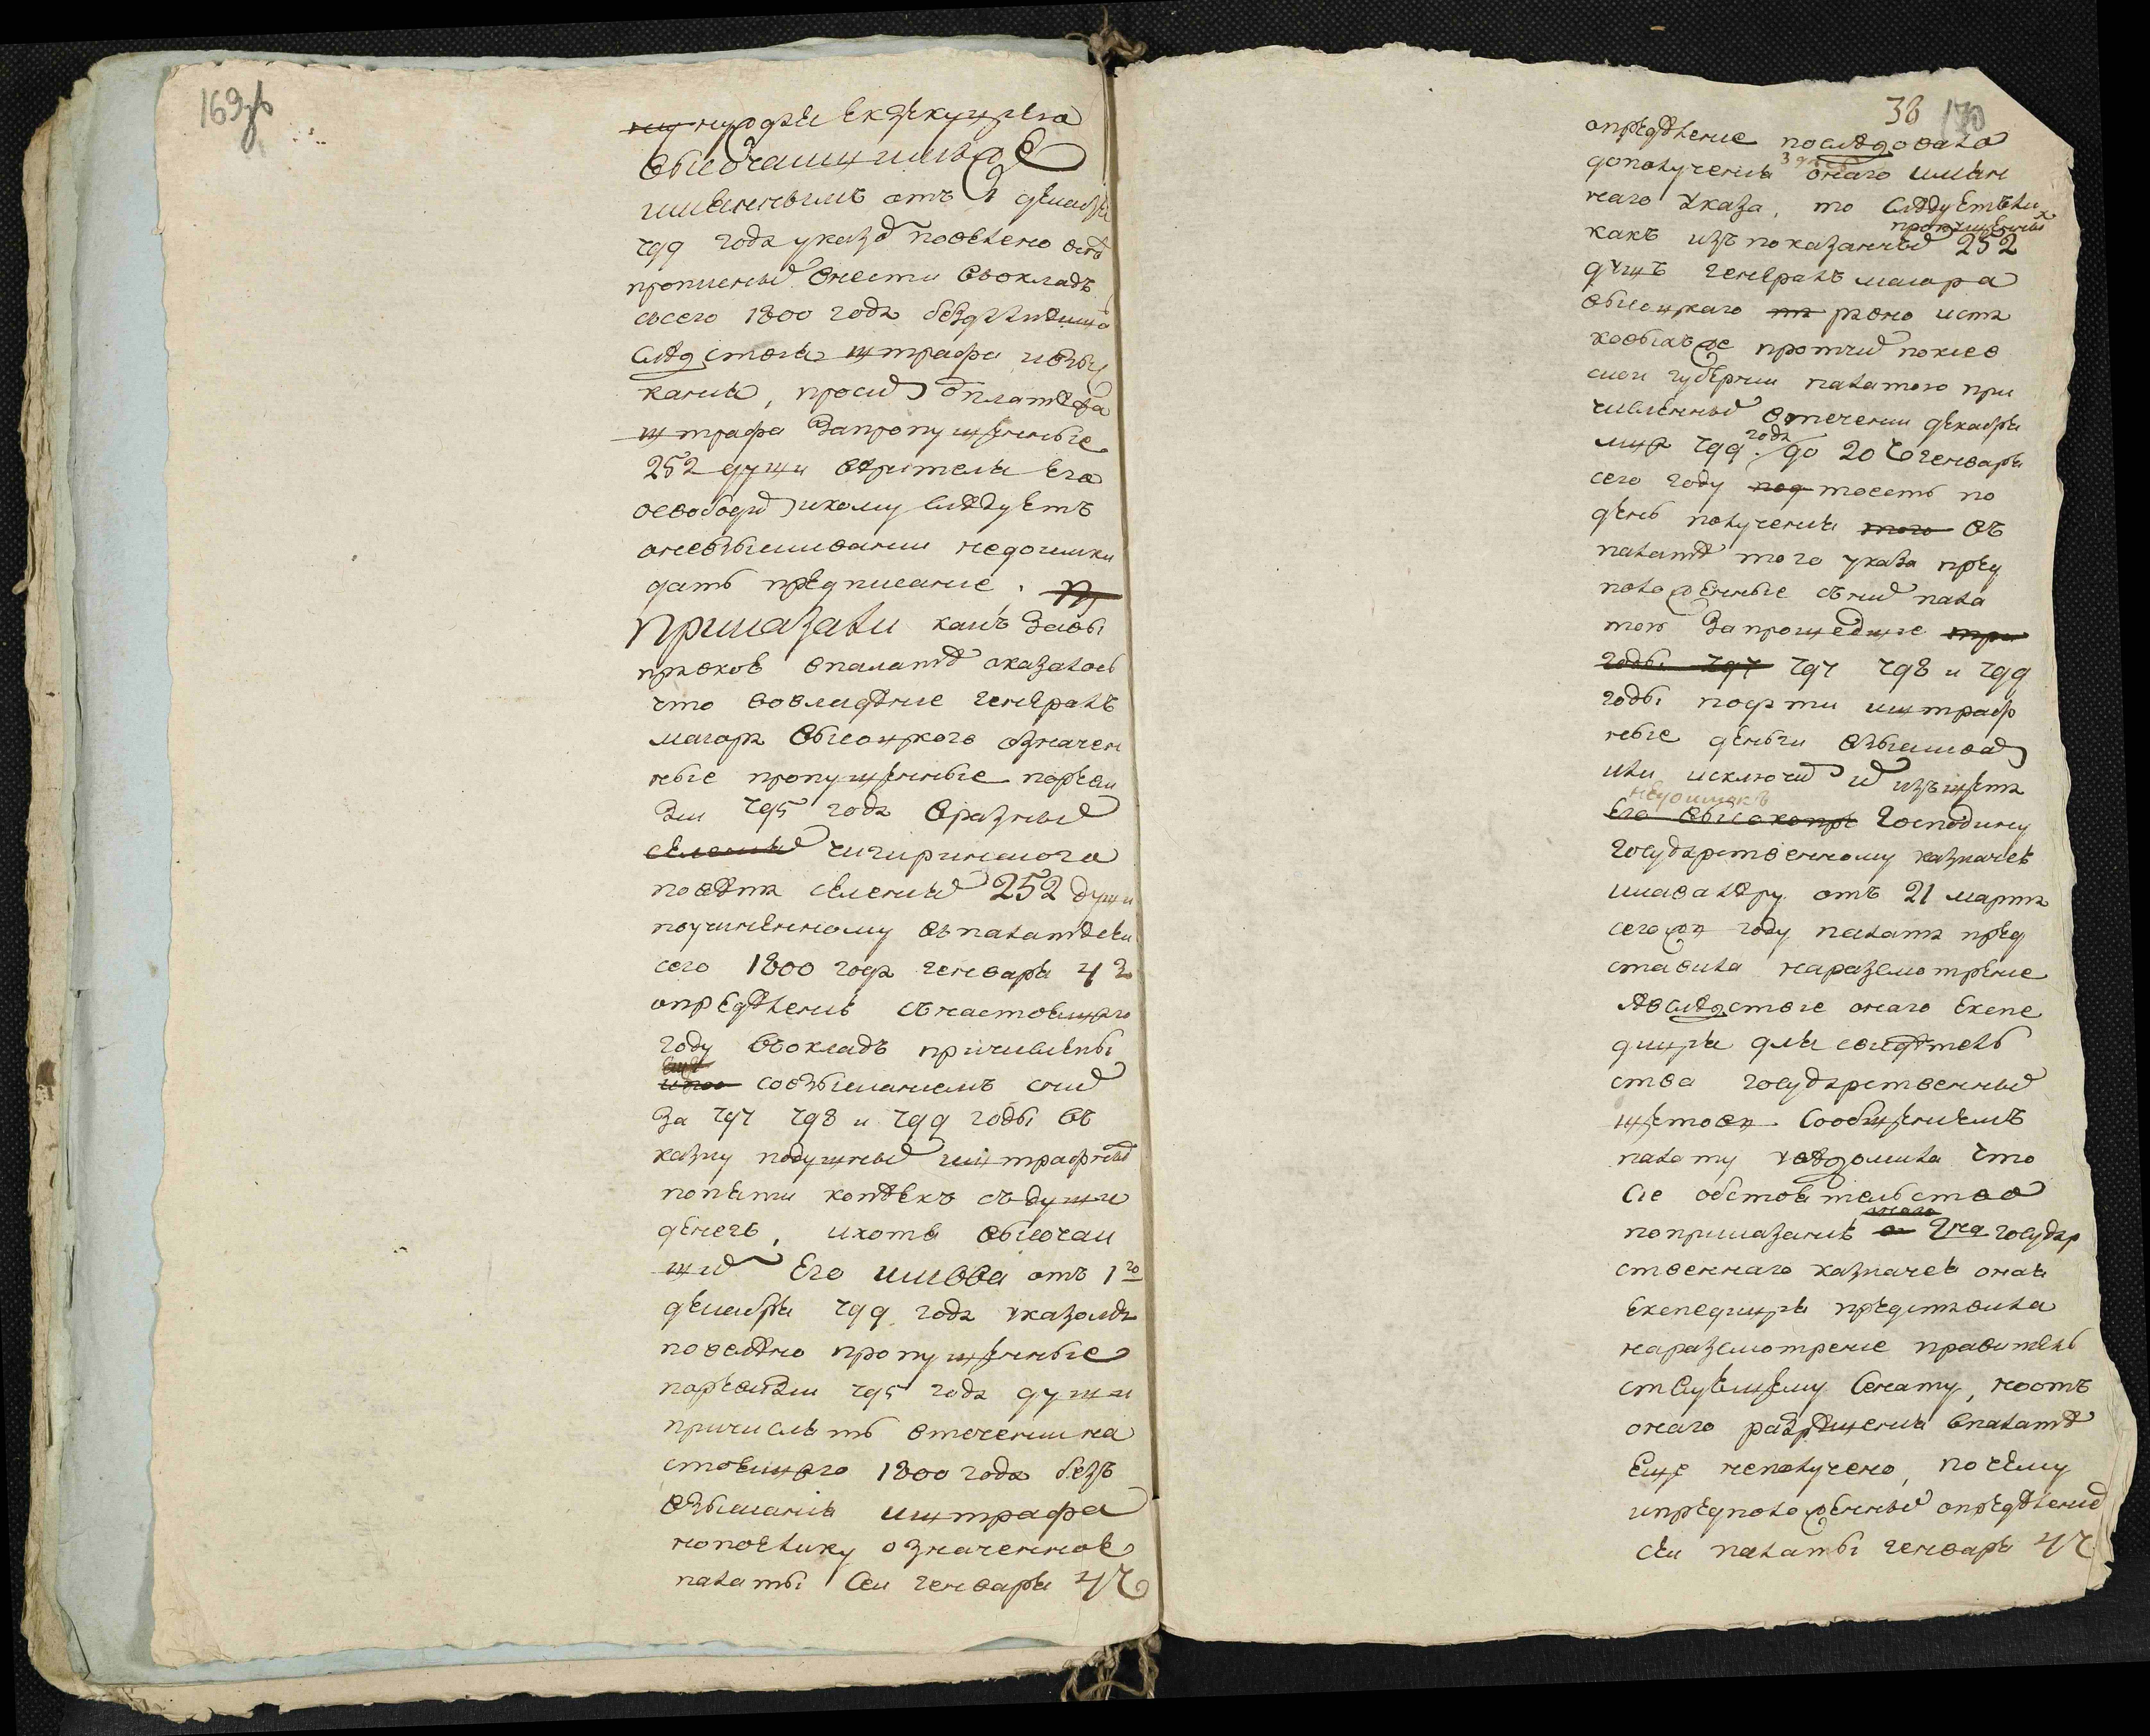 169 зв
нуждѣ екзекуцыя
высочаишимъ же
имяннымъ отъ 1 декабря
799 года указомъ повелено всѣхъ
прописныхъ внести въокладъ
съсего 1800 года бездальнѣишаго
следствия штрафа и взыс
кания, просилъ отплатежа
штрафа запропущенные
252 души вѣрителя его
освободить икому следуетъ
оневзыскивании недоимки
дать предписание.
Приказали какъ засы
правкою впалатѣ оказалось
что вовладѣние генералъ
маиора Высоцкого означен
ные пропущенные поревы
зии 795 года вразныхъ
селенияхъ чигиринского
повѣта селенияхъ 252 души
поучиненному въпалатѣ сеи
сего 1800 года генваря 4го
определению снастоящаго
году въокладъ причислены
совзысканиемъ сних
за 797 798 и 799 годы въ
казну подушныхъ и штрафныхъ
попяти копѣекъ съдуши
денегъ, ихотя высочаи
шимъ Его имп ва отъ 1го
декабря 799 года указомъ
повелѣно пропущенные
поревизии 795 года души
причислять втечении на
стоящаго 1800 года безъ
взыскания штрафа
нопоелику означенное
палаты сеи генваря 4ч
38 170
определение последовало
дополучения онаго имян
наго указа, то следуетъли
какъ изъпоказанныхъ 252
пропущенныхъ
душъ генералъ маиора
Высоцкаго равно иста
ковыхъ же протчихъ покиев
скои губернии палатою при
численныхъ втечении декабря
мца 799 года до 20 ч генваря
сего году тоесть по
день получения въ
палатѣ того указа пред
положенные съних пала
тою запрошедшие
797 798 и 799
годы поспти штраф
ные деньги взыскивать
или исключить их изъщета
недоимокъ
Его высокопре Господину
Государственному казначею
и кавалеру отъ 21 марта
сегожъ году палата пред
ставила наразсмотрение
Авследствие онаго Експе
дицыя для свидѣтель
ства государственныхъ
щетовъ сообщениемъ
палату уведомила что
Сие обстоятельство
поприказанию Гна государ
ственнаго казначея оная
Експедицыя представила
наразсмотрение правитель
ствующему Сенату, ноотъ
онаго разрѣшения впалатѣ
Еще неполучено, почему
ипредположенныхъ определениемъ
сеи палаты генваря 4ч